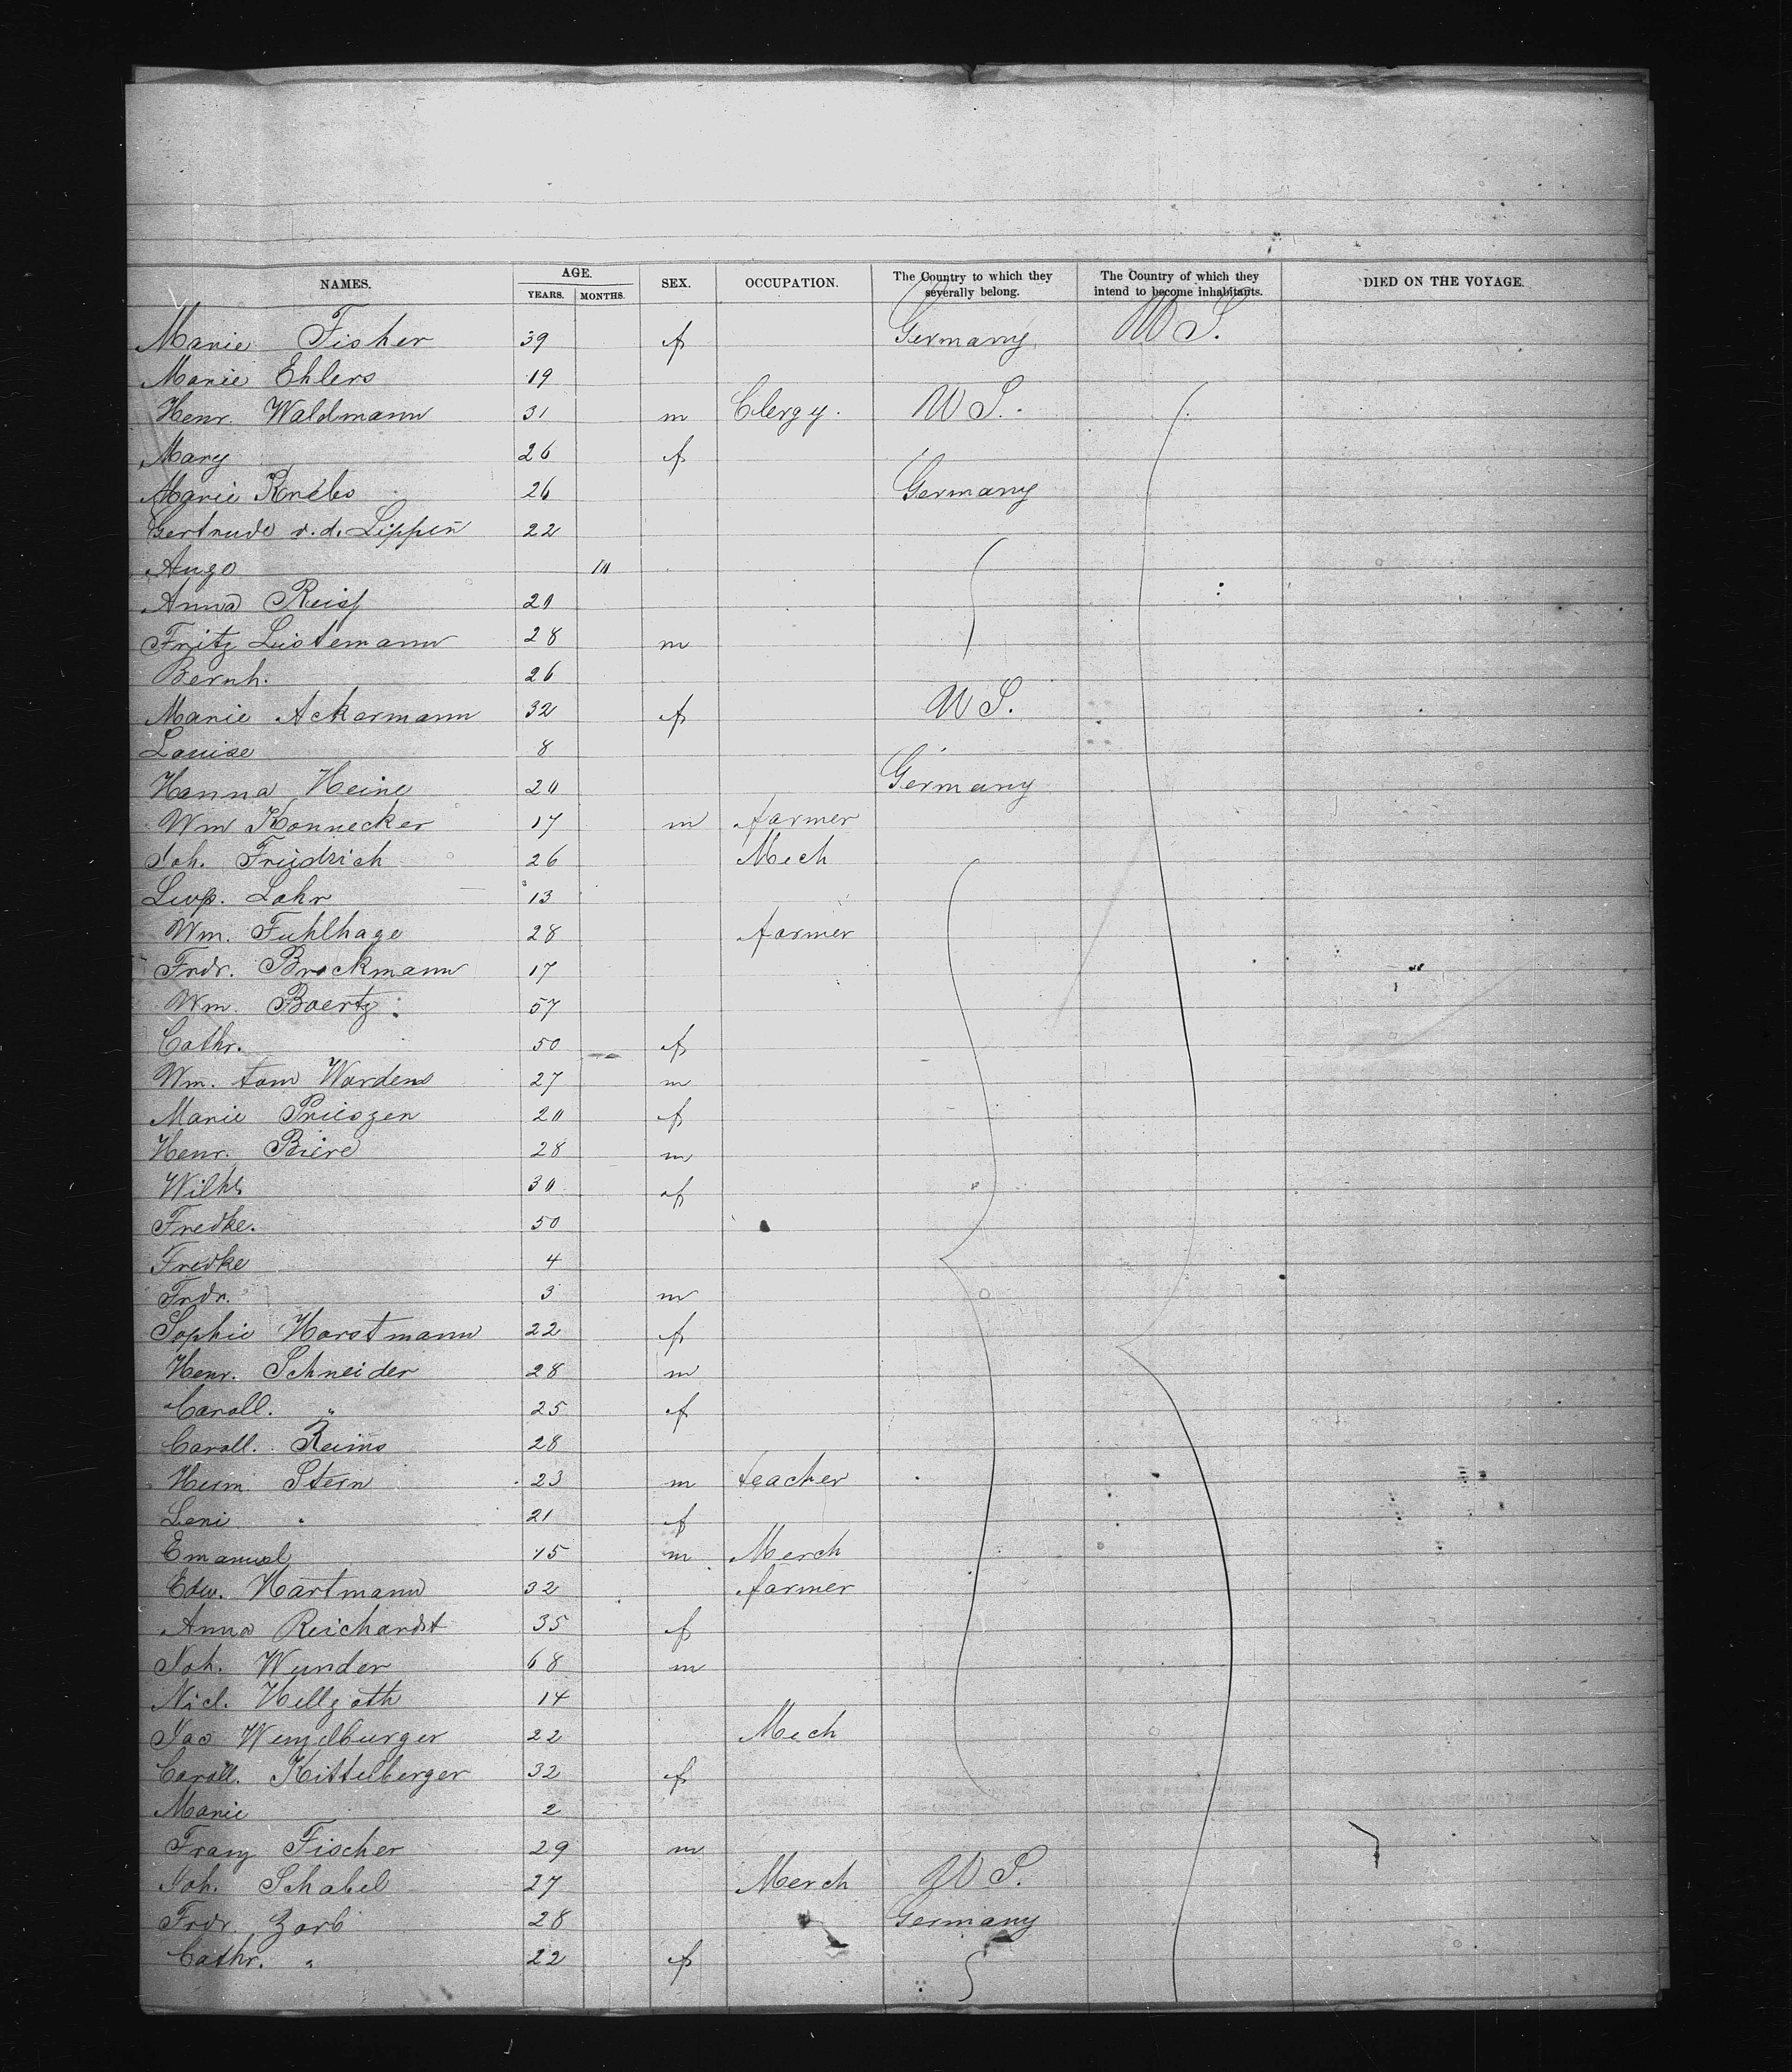 NAMES. AGE. YEARS. MONTHS. SEX. OCCUPATION. The Country to which they severally belong. The Country of which they intend to become inhabitants. DIED ON THE VOYAGE.
Marie Fisher 39 f Germany U S.
Marie Ehlers 19
Henr. Waldmann 31 m Clergy. U S.
Mary 26 f
Marie Knebs 26 Germany
Gertrude v. d. Lippen 22
Augo 10
Anna Reiss 20
Fritz Listemann 28 m
Bernh. 26
Marie Ackermann 32 f U S.
Louise 8
Hanna Heine 20 Germany
Wm Konnecker 17 m farmer
Joh. Friedrich 26 Mech
Leop. Lohr 13
Wm. Fuhlhage 28 farmer
Frdr. Brockmann 17
Wm. Boertz 57
Cathr. 50 f
Wm. tom Wordens 27 m
Marie 20 f
Henr. Biere 28 m
Wilh. 30 f
Fredke. 50
Fredke 4
Frdr. 3 m
Sophie Horstmann 22 f
Henr. Schneider 28 m
Caroll. " 25 f
Caroll. Reims 28
Herm Stern 23 m teacher
Leni " 21 f
Emanuel 15 m Merch
Edw. Hartmann 32 farmer
Anna Reichardt 35 f
Joh. Wunder 68 m
Nicl. Hellgoth 14
Jac Wenzelburger 22 Mech
Caroll. Kittelberger 32 f
Marie 2
Franz Fischer 29 m
Joh. Schabel 27 Merch U S.
Frdr. Zorb 28 Germany
Cathr. " 22 f